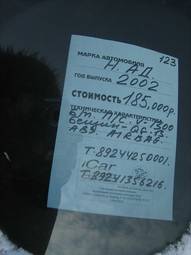 123
МАРКА АВТОМОБИЛЯ
Н. АД
ГОД ВЫПУСКА 2002
СТОИМОСТЬ 185,000р.
ТЕХНИЧЕСКАЯ ХАРАКТЕРИСТИКА
б/п. 1500
Бензин
АВS. AIRBAG.
Т-89244250001.
iCar
Т-89241356216.